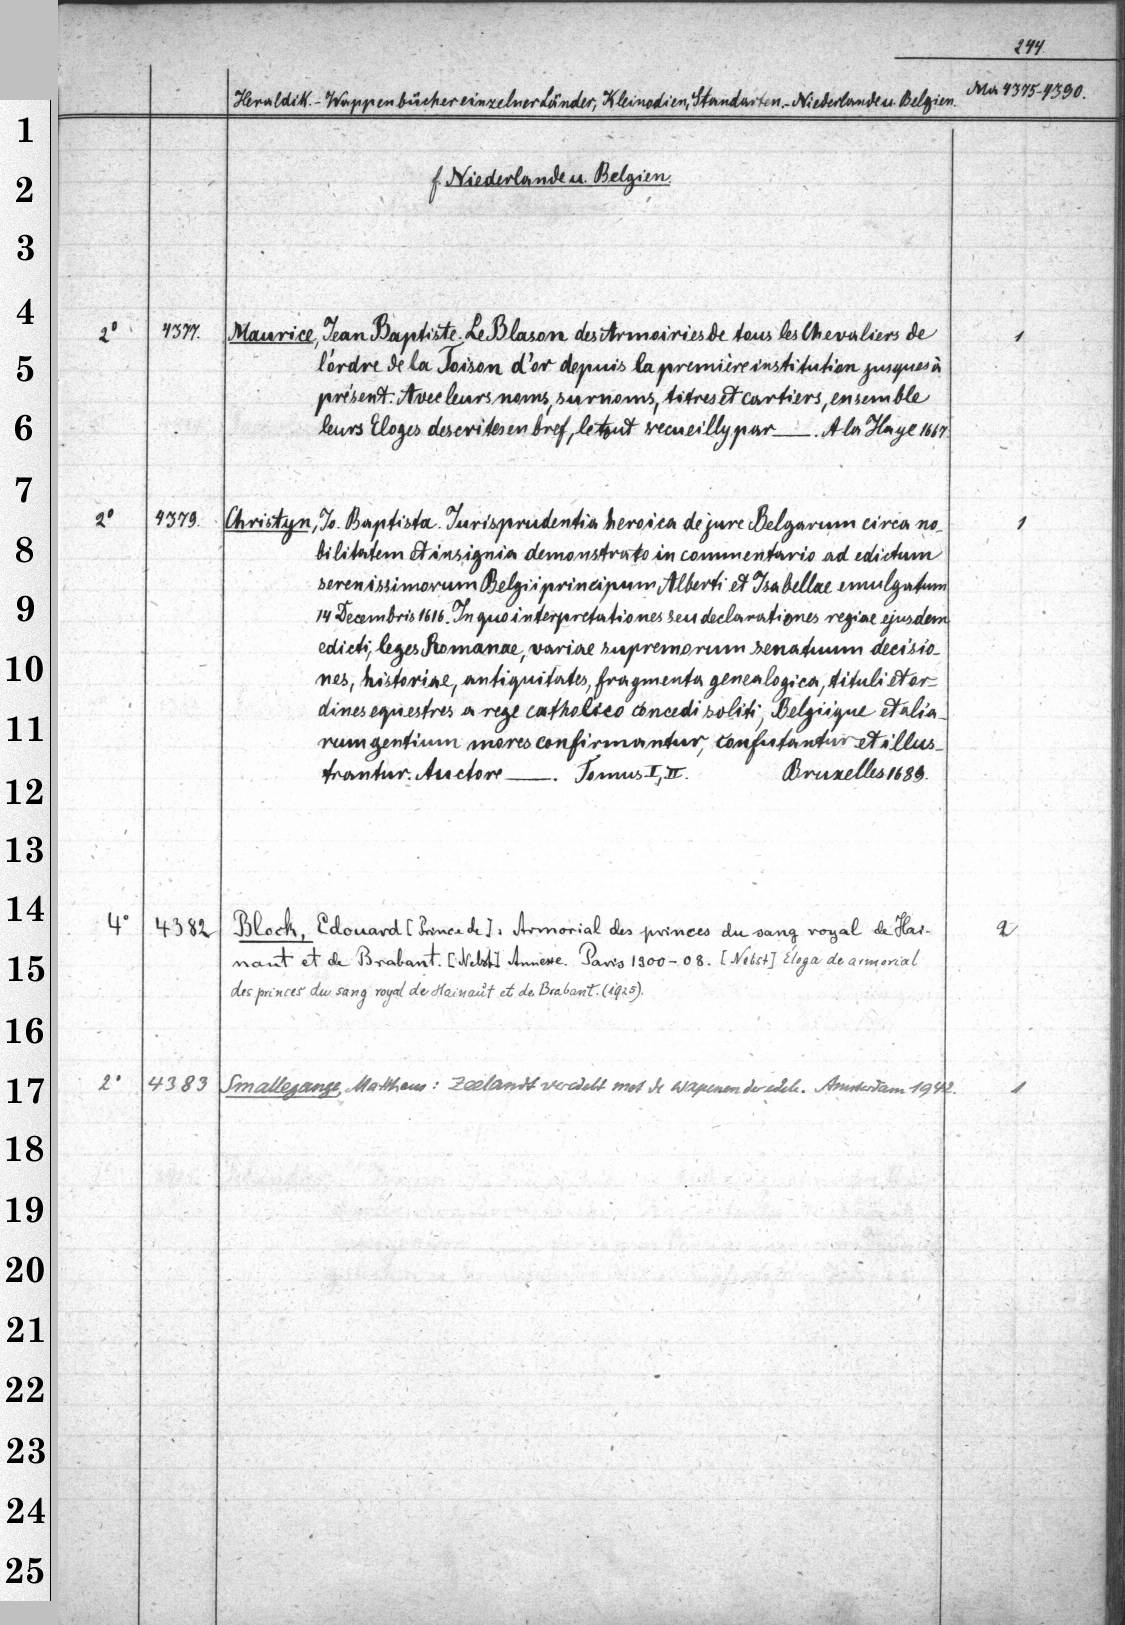 244
Heraldik.- Wappenbücher einzelner Länder, Kleinodien, Standarten.- Niederlande u. Belgien. Ma 4375-4390.
f. Niederlande u. Belgien.
2° 4377. Maurice, Jean Baptiste. Le Blason des Armoiries de tous les Chevaliers de 1
l'ordre de la Toison d'or depuis la première institution jusques à
présent. Avec leurs noms, surnoms, titres et cartiers, ensemble
leurs Eloges descrites en bref, le tout recueilly par ___. A la Haye 1667
2° 4379. Christyn, Jo. Baptista. Jurisprudentia heroica de jure Belgarum circa no- 1
bilitatem et insignia demonstrato in commentario ad edictum
serenissimorum Belgii principum, Alberti et Isabellae emulgatum
14 Decembris 1616. In quo interpretationes seu declarationes regiae ejusdem
edicti, leges Romanae, variae supremorum senatuum decisio-
nes, historiae, antiquitates, fragmenta genealogica, tituli et or-
dines equestres a rege catholico concedi soliti, Belgiique et alia-
rum gentium mores confirmantur, confutantur et illus-
trantur. Auctore ___. Tomus I, II. Bruxelles 1689.
4° 4382 Block, Edouard [Prince de]: Armorial des princes du sang royal de Hai- 2
naut et de Brabant. [Nebst] Annexe. Paris 1900-08. [Nebst] Éloga de armorial
des princes du sang royal de Hainaut et de Brabant. (1925).
2° 4383 Smallegange, Mattheus: Zeelandt verciert met de wapenen der edele. Amsterdam 1942. 1
1
2
3
4
5
6
7
8
9
10
11
12
13
14
15
16
17
18
19
20
21
22
23
24
25